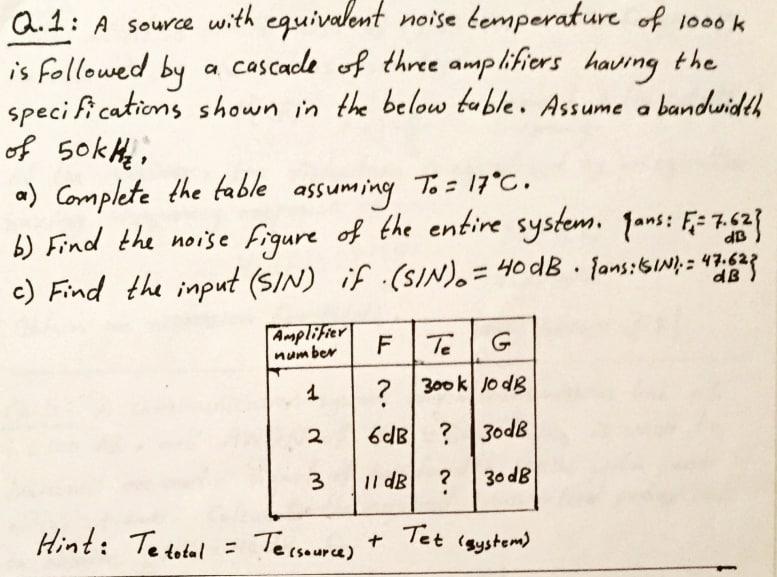 Q.1: A source with equivalent noise temperature of 1000 k
is followed by a cascade of three amplifiers having the
specifications shown in the below table. Assume a bandwidth
of 50kHz.
a) Complete the table assuming To = 17°C.
b) Find the noise figure of the entire system. {ans: Ft = 7.62 dB}
c) Find the input (S/N) if (S/N)o = 40 dB. {ans: (S/N)i = 47.62 dB}
Amplifier number F Te G
1 ? 300k 10 dB
2 6dB ? 30dB
3 11 dB ? 30 dB
Hint: Te total = Te (source) + Tet (system)